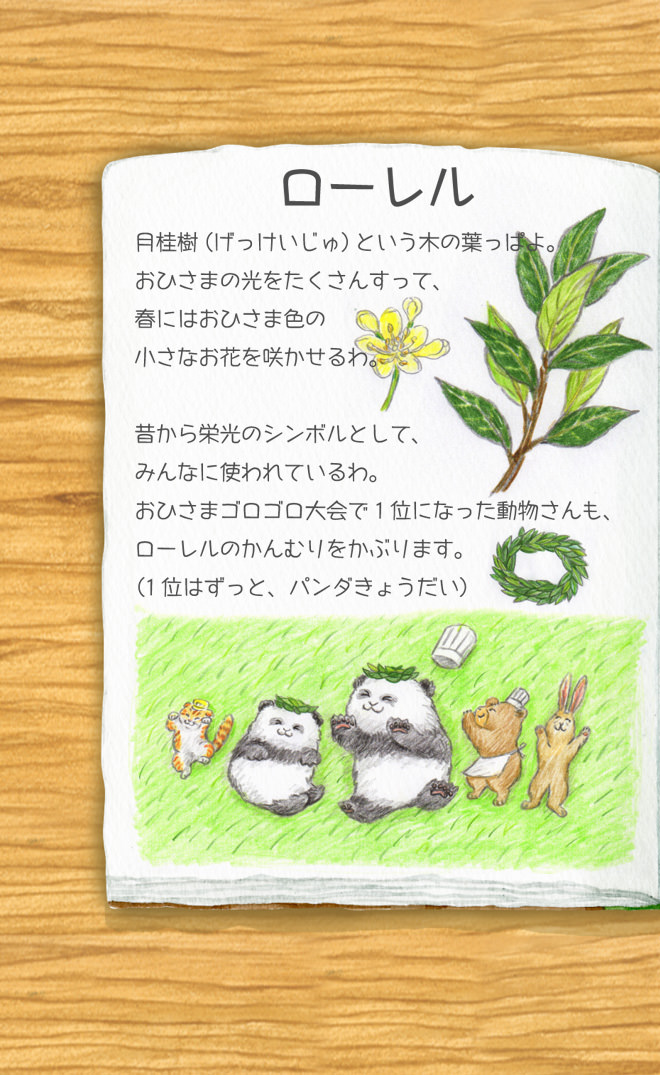 ローレル
月桂樹(げっけいじゅ)という木の葉っぱよ。
おひさまの光をたくさんすって、
春にはおひさま色の
小さなお花を咲かせるわ。
昔から栄光のシンボルとして、
みんなに使われているわ。
おひさまゴロゴロ大会で1位になった動物さんも、
ローレルのかんむりをかぶります。
(1位はずっと、パンダきょうだい)